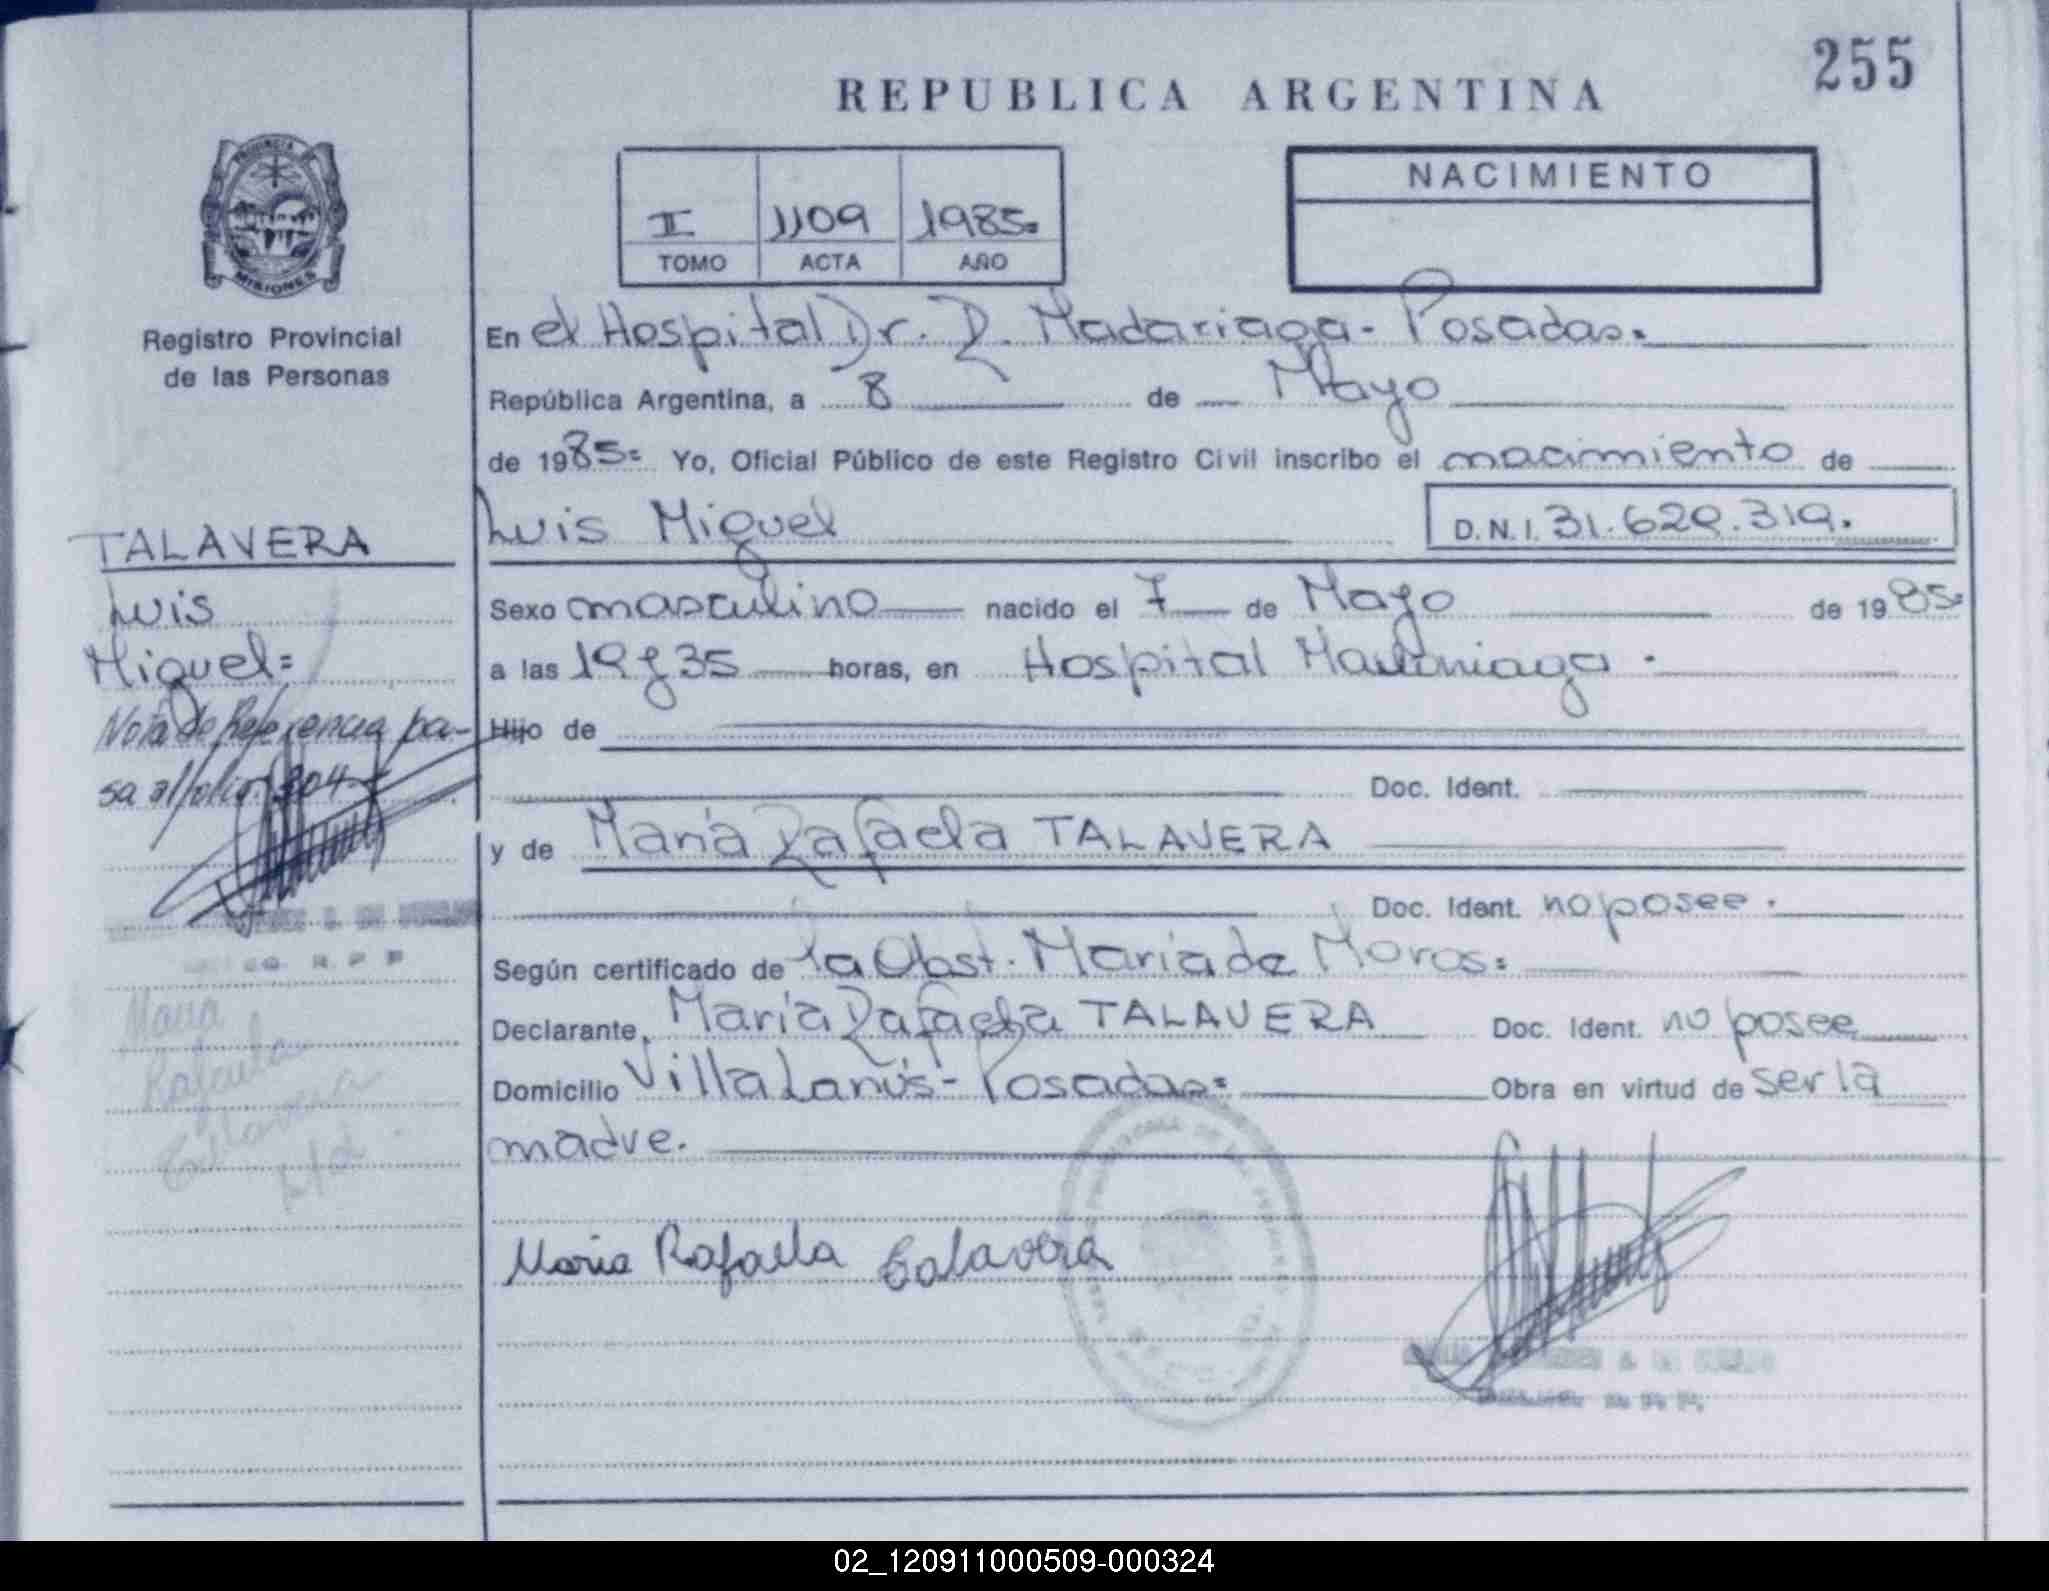 255
REPUBLICA ARGENTINA
PROVINCIA DE
MISIONES
Registro Provincial
de las Personas
II 1109 1985=
TOMO ACTA AÑO
NACIMIENTO
En el Hospital Dr. R. Madariaga - Posadas.
República Argentina, a 8 de Mayo
de 1985= Yo, Oficial Público de este Registro Civil inscribo el nacimiento de
Luis Miguel D.N.I. 31.629.319.
Sexo masculino nacido el 7 de Mayo de 1985=
a las 19 y 35 horas, en Hospital Madariaga.
Hijo de
Doc. Ident.
y de María Rafaela TALAVERA
Doc. Ident. no posee.
Según certificado de la Obst. María de Moros=
Declarante, María Rafaela TALAVERA Doc. Ident. no posee
Domicilio Villa Lanús - Posadas= Obra en virtud de ser la
madre.
Maria Rafaela Talavera
TALAVERA
Luis
Miguel=
Nota de Referencia pa-
sa al folio 304
Maria
Rafaela
Talavera
02_120911000509-000324